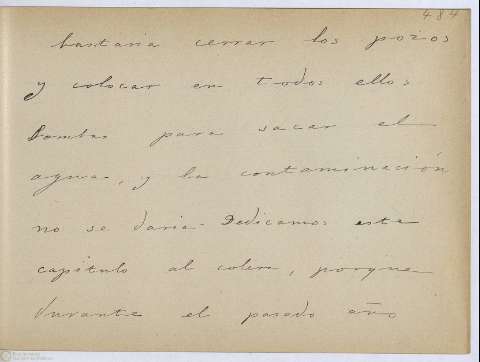 484
bastaria cerrar los pozos
y colocar en todos ellos
bombas para sacar el
agua, y la contaminación
no se daria. Dedicamos este
capitulo al colera, porque
durante el pasado año